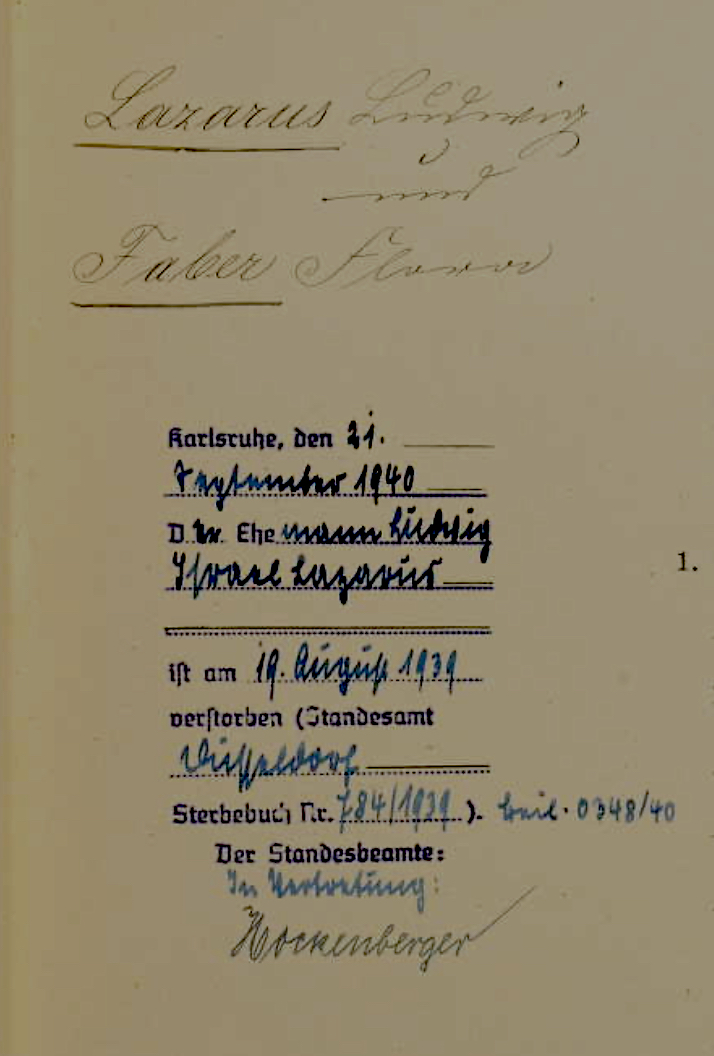 Lazarus Ludwig
und
Faber Flora
Karlsruhe, den 21.
September 1940
Der Ehemann Ludwig
Israel Lazarus
1.
ist am 19. August 1939
verstorben (Standesamt
Düsseldorf
Sterbebuch Nr. 784/1939). Beil. 0348/40
Der Standesbeamte:
In Vertretung:
Hockenberger